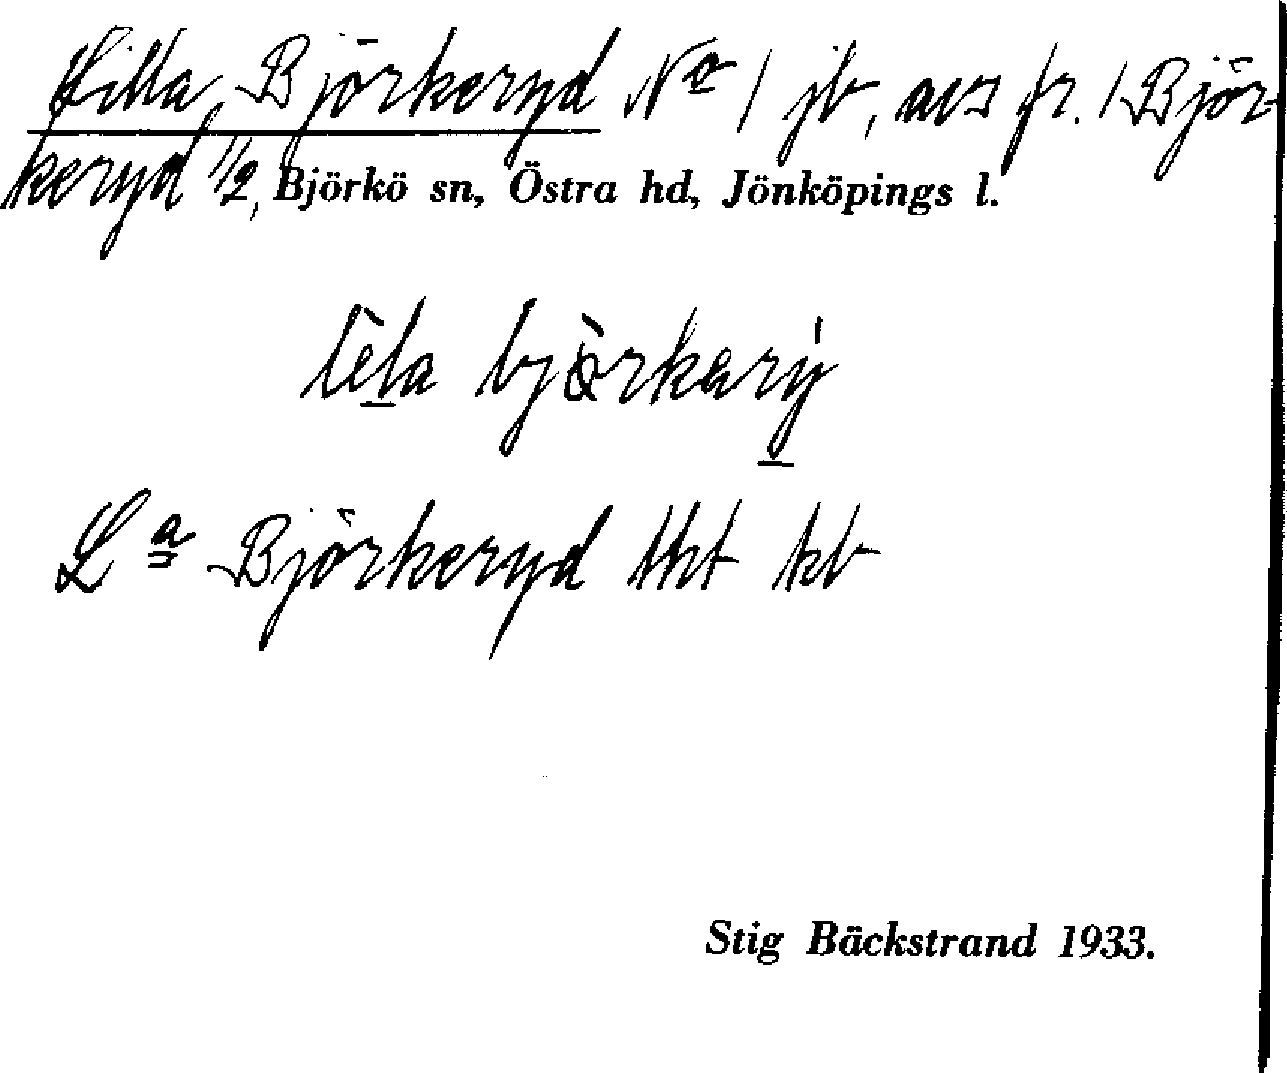 Lilla Björkeryd Nº 1 jb, avs fr. 1 Björ-
keryd 1/2, Björkö sn, Östra hd, Jönköpings l.
lela björkary
La Björkeryd tkt kb
Stig Bäckstrand 1933.